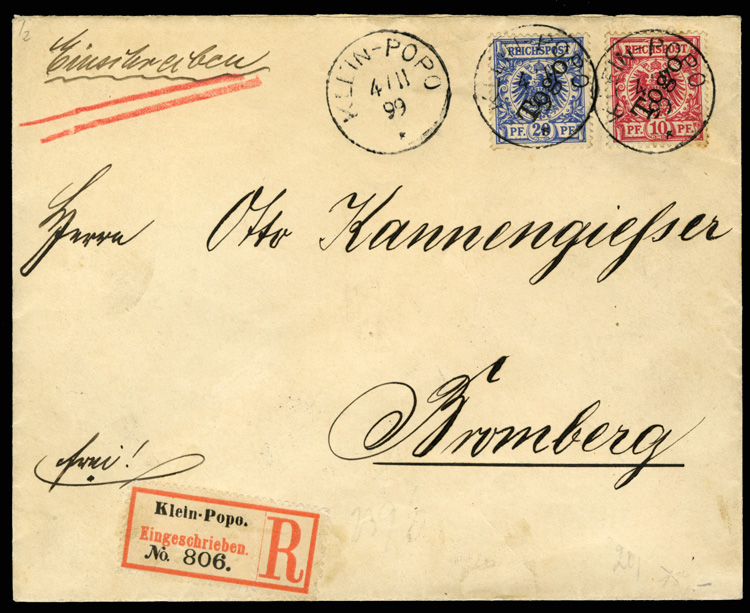 1/2
Einschreiben
KLEIN-POPO
4/11
99
*
REICHSPOST
PF. 20 PF.
Togo
REICHSPOST
PF. 10 PF.
Togo
Herrn Otto Kannengiesser
Bromberg
frei!
Klein-Popo.
Eingeschrieben.
No. 806.
R